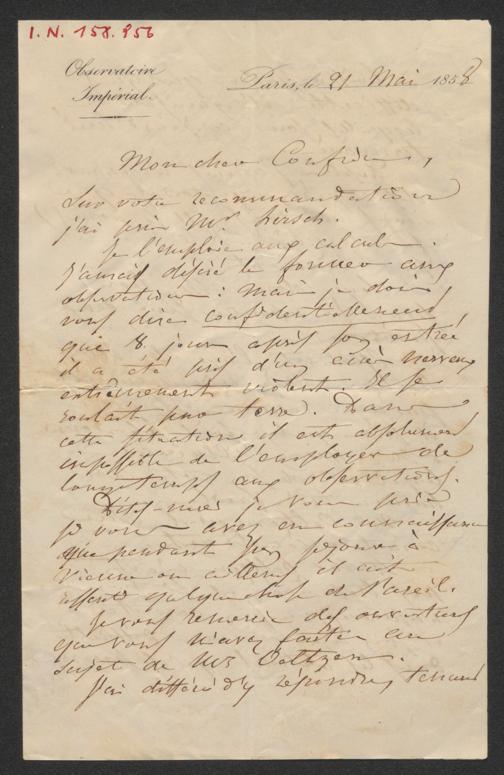 I.N. 158.956
Observatoire
Impérial.
Paris, le 21 Mai 1858
Mon cher Confrère,
Sur votre recommandation
j'ai pris Mr. Hirsch.
Je l'emploie aux calculs.
J'aurais désiré le former aux
observations : mais je dois
vous dire confidentiellement
que 8 jours après son entrée
il a été pris d'une crise nerveuse
extrêmement violente. Il se
roulait par terre. Dans
cette situation il est absolument
impossible de l'employer de
longtemps aux observations.
Dites-moi je vous prie
si vous avez eu connaissance
que pendant son séjour à
Vienne ou ailleurs il ait
ressenti quelque chose de pareil.
Je vous remercie des ouvertures
que vous m'avez faites au
sujet de Mr Oeltzen.
J'ai différé d'y répondre, tenant